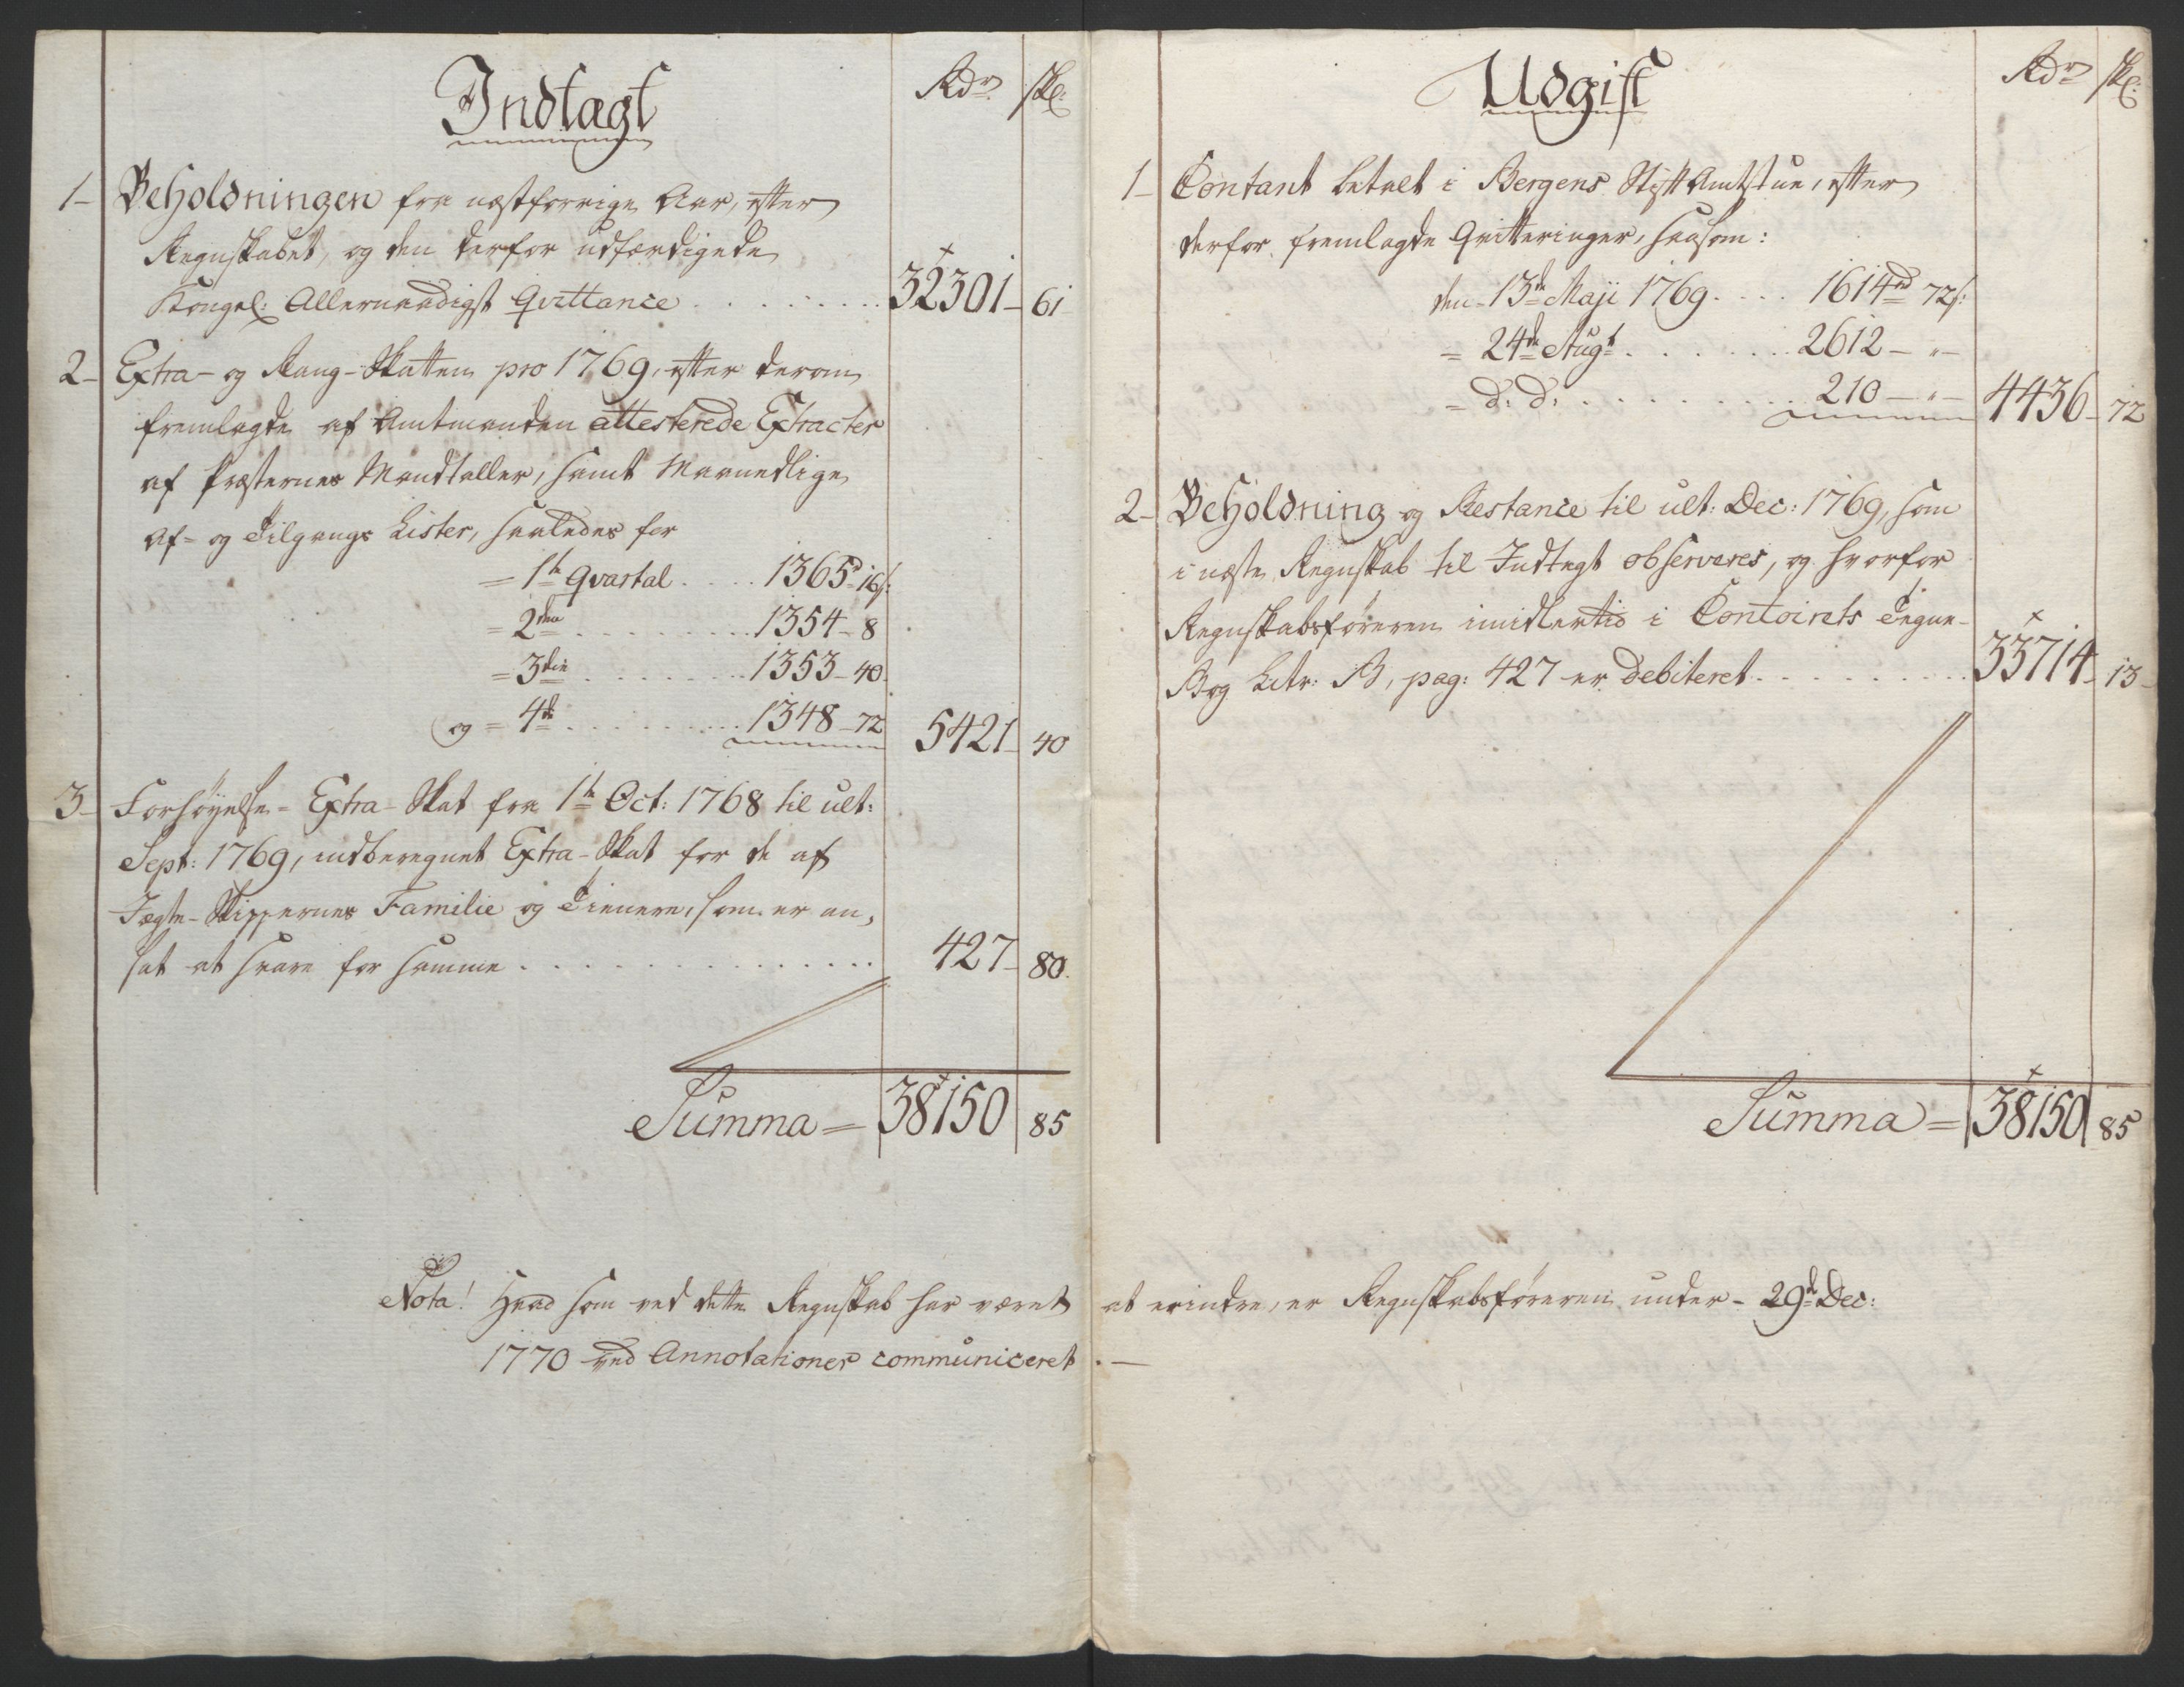 Indtagt
Rdr. skl:
1- Beholdningen fra næstforrige Aar, efter
Regnskabet, og den derfor udfærdigede
Kongel: Allernaadigst Qvittance ........ 32301- 61
2- Extra- og Rang-Skatten pro 1769, efter derom
fremlagde af Amtmanden attesterede Extracter
af Præsternes Mandtaller, samt Maanedlige
Af- og Tilgangs Lister, saaledes for
= 1te Qvartal .... 1365rd 16s:
= 2den ........ 1354- 8
= 3die ........ 1353- 40
og = 4de ........ 1348- 72 5421- 40
3- Forhøyelse- Extra- Skat fra 1te Oct: 1768 til ult:
Sept: 1769, indberegnet Extra-Skat for de af
Jægte-Skippernes Familie og Tienere, som er an,
sat at svare for samme ............ 427- 80.
Summa = 38150 85
Udgift
Rdr skl:
1- Contant betalt i Bergens Stift Amtstue, efter
derfor fremlagde Qvitteringer, saasom:
den 13de Maji 1769 .... 1614rd 72s:
= 24de Augt ....... 2612- "-
= d: d: ......... 210- "- 4436- 72
2- Beholdning og Restance til ult: Dec: 1769, som
i næste Regnskab til Indtægt observeres, og hvorfor
Regnskabsføreren imidlertid i Contoirets Tegne-
Bog Litr: B, pag: 427 er debiteret ......... 33714- 13-
Summa = 38150 85
Nota! Hvad som ved dette Regnskab har været at erindre, er Regnskabsføreren under- 29de Dec:
1770 ved Annotationer communiceret . —